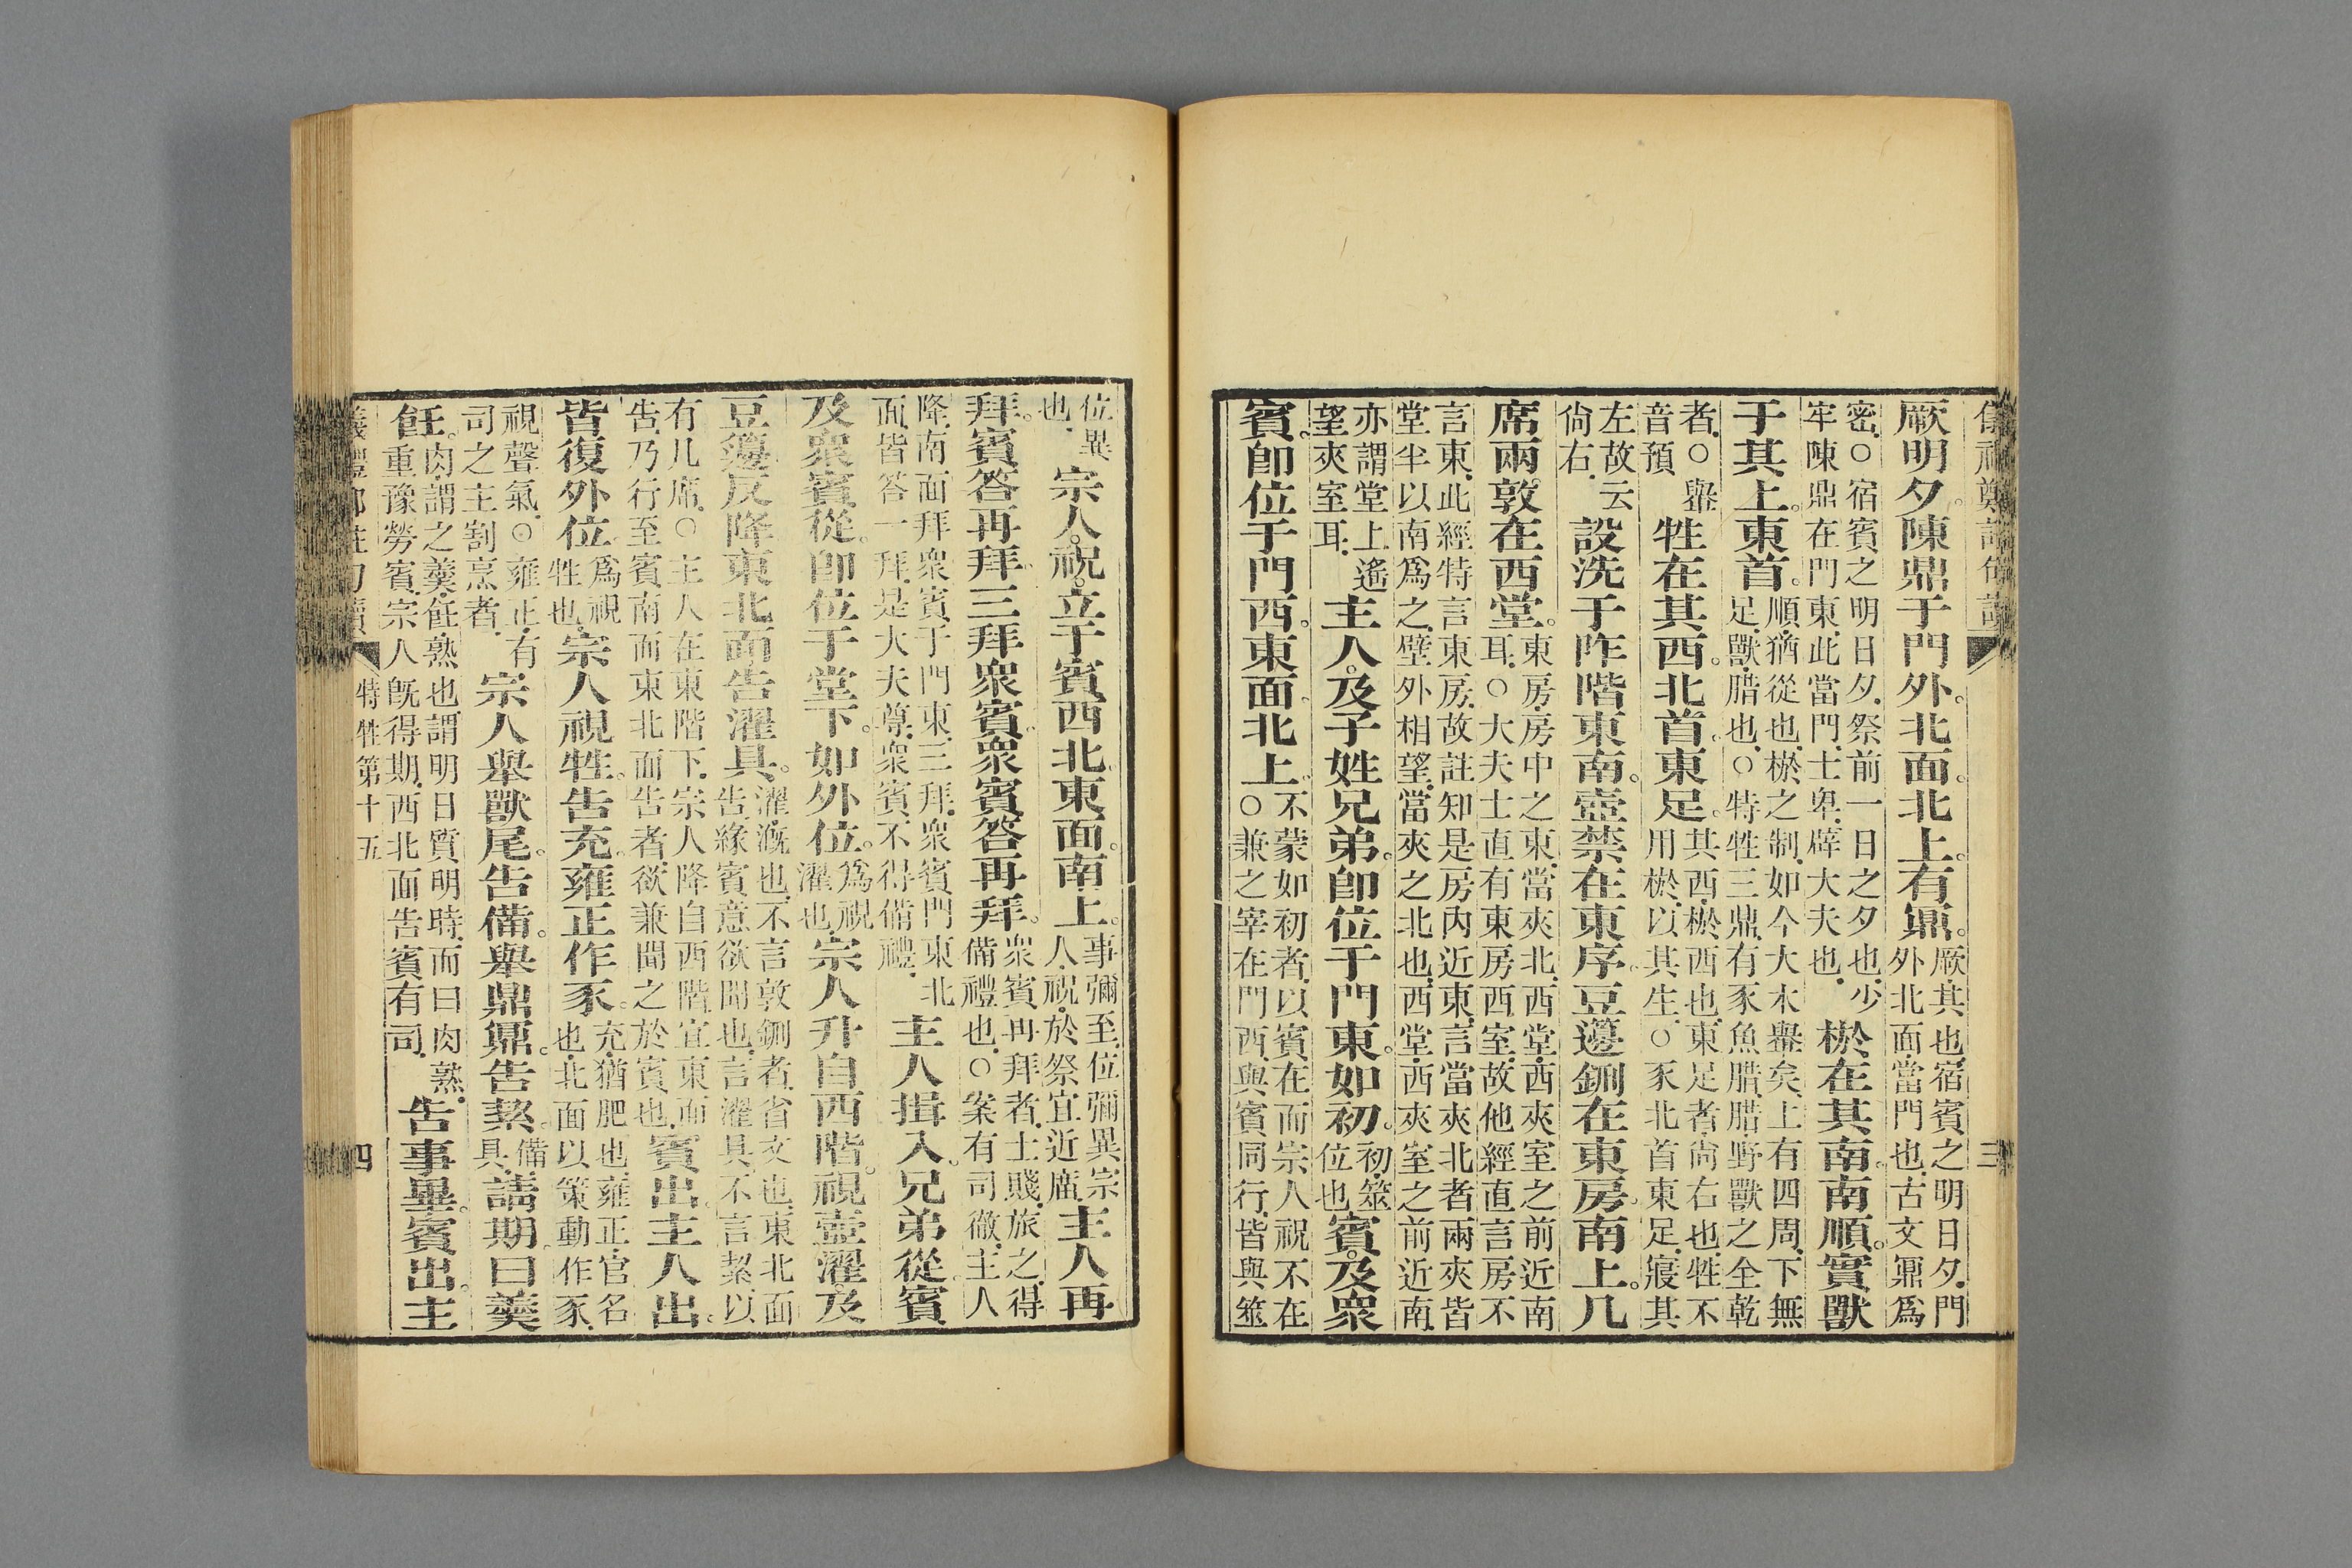 儀禮鄭註句讀　三
厥明夕。陳鼎于門外。北面。北上。有鼏。厥、其也、宿賓之明日夕、門外北面、當門也、古文鼏爲
密、○宿賓之明日夕、祭前一日之夕也、少牢陳鼎在門東、此當門、士卑、辟大夫也、棜在其南。南順。實獸
于其上。東首。順、猶從也、棜之制、如今大木轝矣、上有四周、下無足、獸、腊也、○特牲三鼎、有豕魚腊、腊、野獸之全乾
者、○轝音預　牲在其西。北首。東足。其西、棜西也、東足者、尚右也、牲不用棜、以其生、○豕北首東足、寢其
左、故云尙右、設洗于阼階東南。壺禁在東序。豆籩鉶在東房。南上。几
席兩敦在西堂。東房、房中之東、當夾北、西堂、西夾室之前近南耳、○大夫士直有東房西室、故他經直言房不
言東、此經特言東房、故註知是房內近東、言當夾北者、兩夾皆堂半以南爲之、壁外相望、當夾之北也、西堂、西夾室之前近南、
亦謂堂上遙望夾室耳、主人及子姓兄弟。卽位于門東。如初。初、筮位也、賓及衆
賓。卽位于門西。東面。北上。不蒙如初者、以賓在而宗人祝不在、○兼之宰在門西、與賓同行、皆與筮
位異也、宗人。祝。立于賓西北。東面。南上。事彌至、位彌異、宗人、祝、於祭宜近廟、主人再
拜。賓答再拜。三拜衆賓。衆賓答再拜。衆賓再拜者、士賤、旅之、得備禮也、○案有司徹、主人
降、南面拜衆賓于門東、三拜、衆賓門東北面、皆答一拜、是大夫尊、衆賓不得備禮、主人揖入。兄弟從。賓
及衆賓從。卽位于堂下。如外位。爲視濯也、宗人升自西階。視壺濯及
豆籩。反降東北面告濯具。濯、漑也、不言敦鉶者、省文也、東北面告、緣賓意欲聞也、言濯具、不言絜、以
有几席、○主人在東階下、宗人降自西階、宜東面告、乃行至賓南而東北面告者、欲兼聞之於賓也、賓出。主人出。
皆復外位。爲視牲也、宗人視牲。告充。雍正作豕。充、猶肥也、雍正、官名也、北面以策動作豕、
視聲氣、○雍正、有司之主割烹者、宗人舉獸尾。告備。舉鼎鼏。告絜。備、具、請期。曰羹
飪。肉謂之羹、飪、熟也、謂明日質明時、而曰肉熟、重豫勞賓、宗人旣得期、西北面告賓有司、告事畢。賓出。主
儀禮鄭註句讀　特牲第十五　四